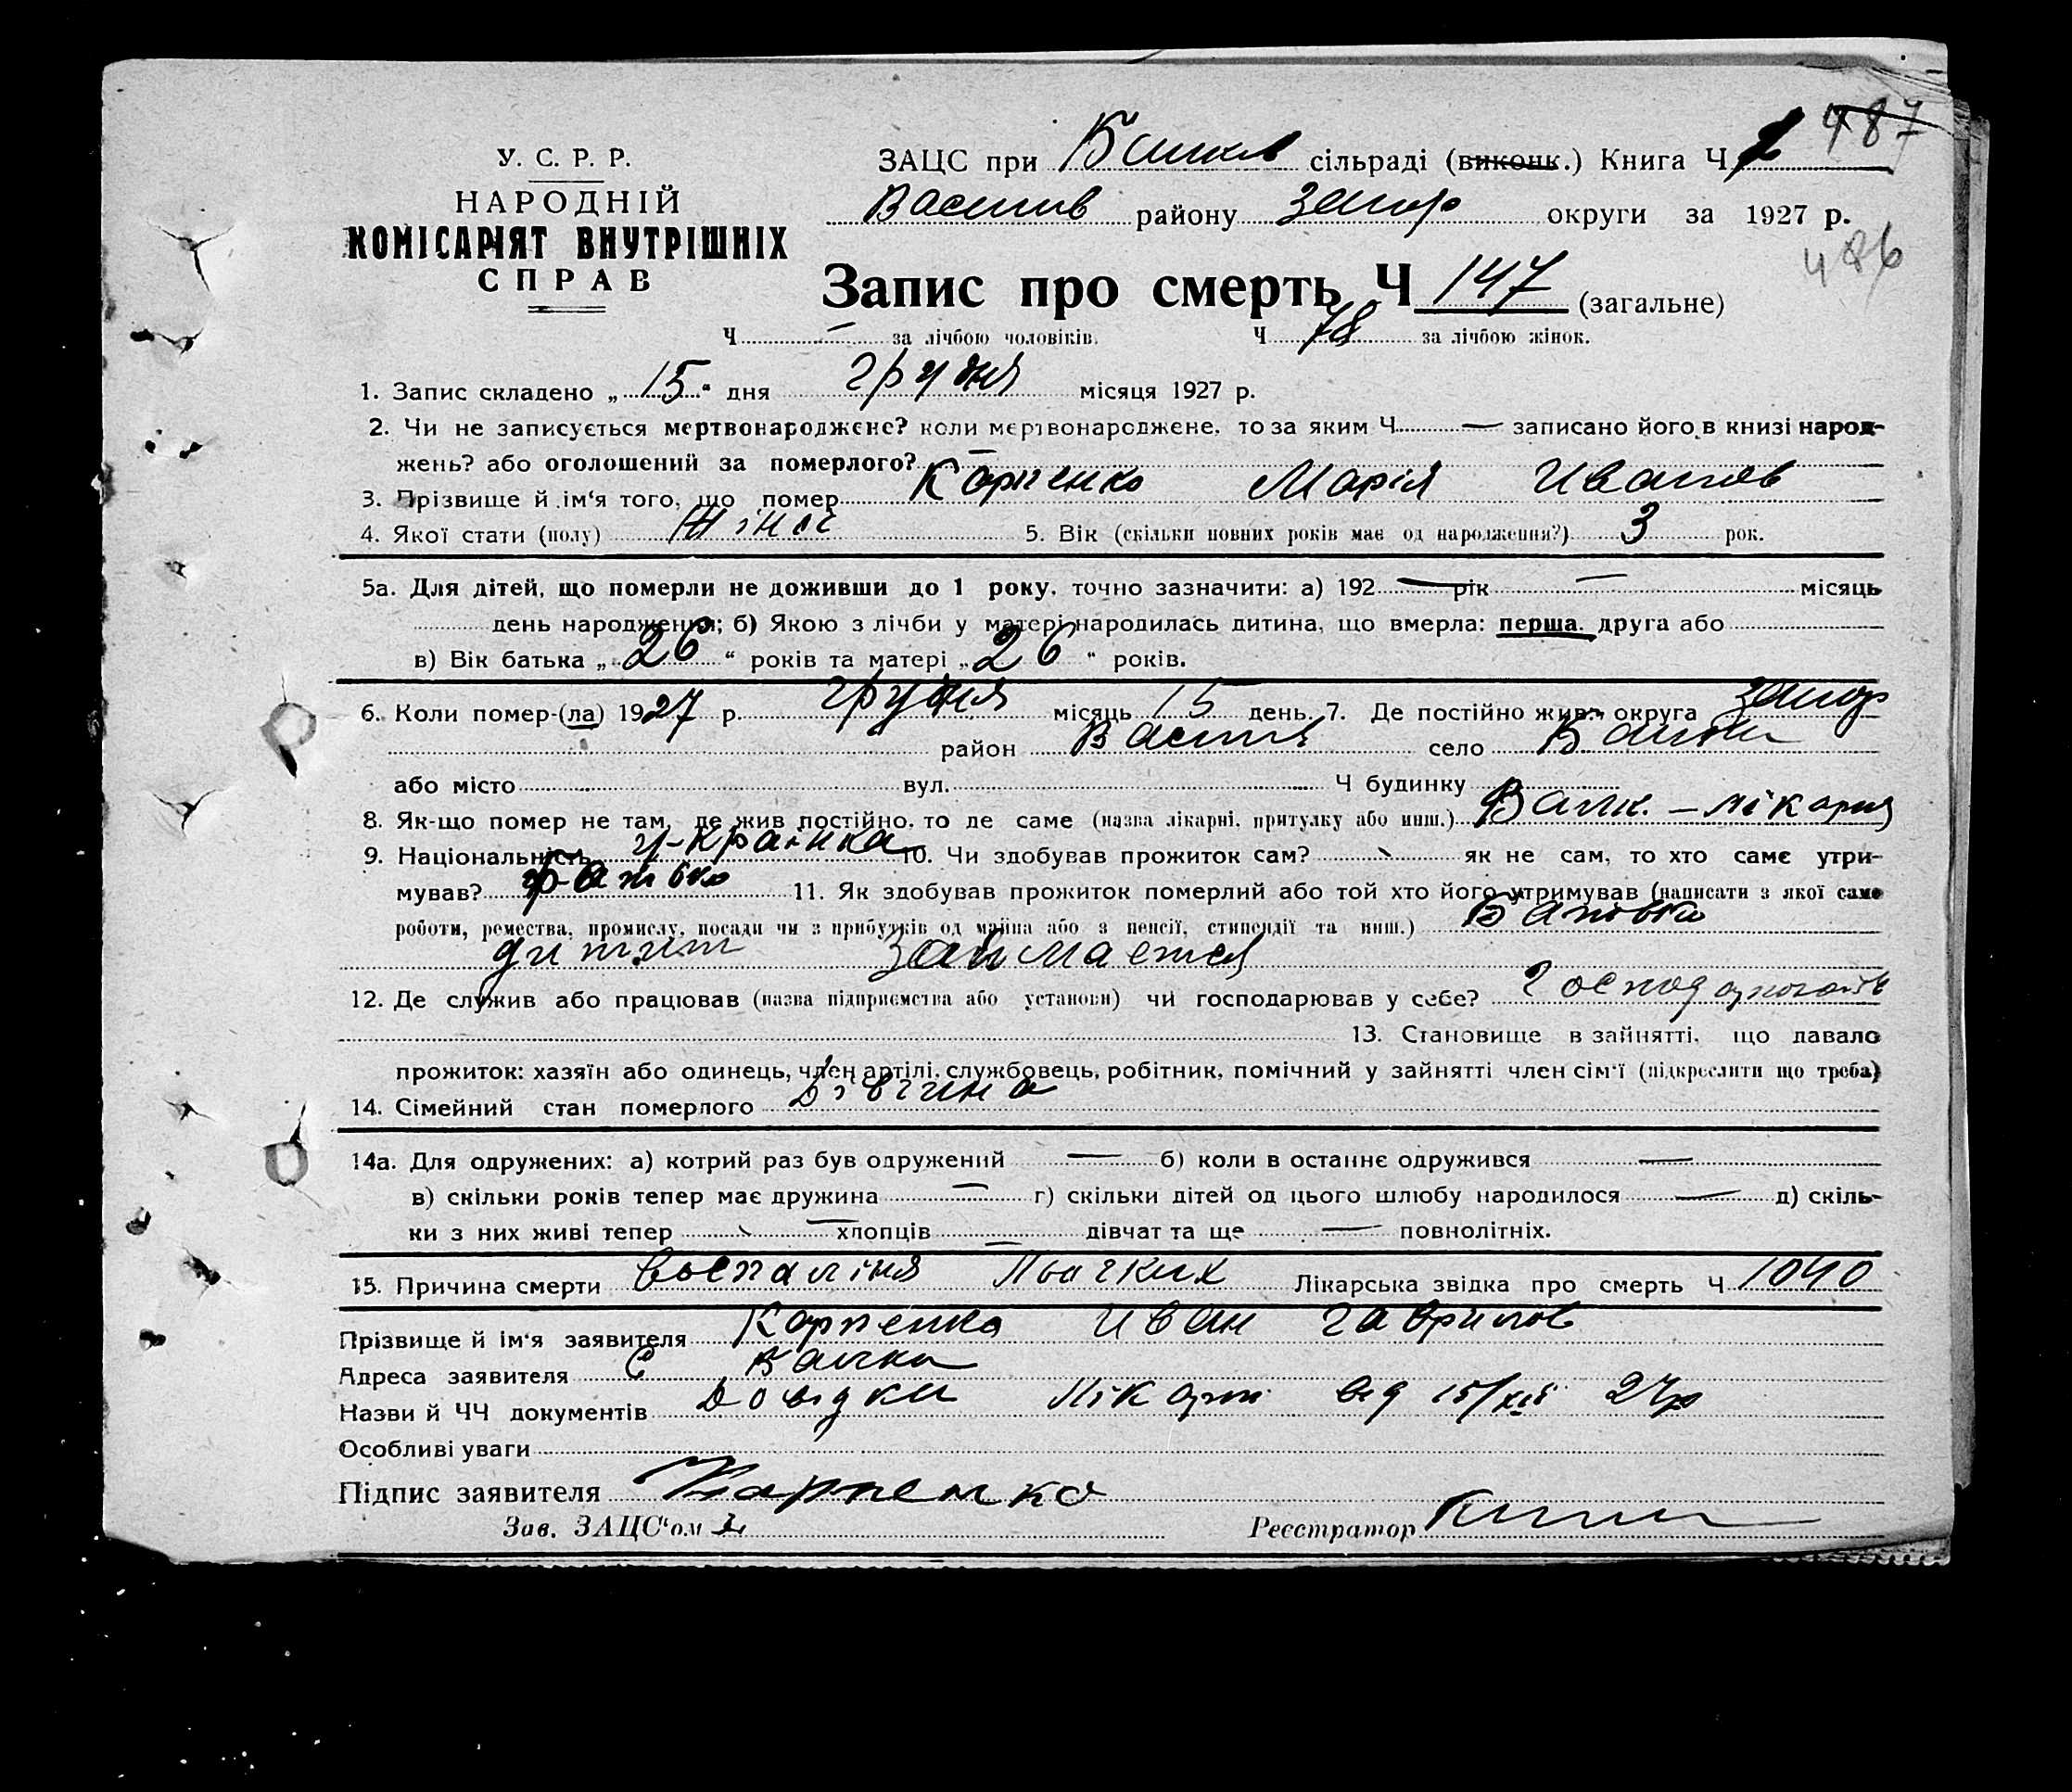 487
У. С. Р. Р.
НАРОДНІЙ
КОМІСАРІЯТ ВНУТРІШНІХ
СПРАВ
ЗАЦС при сільраді (виконк.) Книга Ч
Василів району Запор округи за 1927 р.
486
Запис про смерть Ч 147 (загальне)
Ч — за лічбою чоловіків. Ч 78 за лічбою жінок.
1. Запис складено „ 15 “ дня грудня місяця 1927 р.
2. Чи не записується мертвонароджене? коли мертвонароджене, то за яким Ч — записано його в книзі народ-
жень? або оголошений за померлого? —
3. Прізвище й ім'я того, що помер Карпенко Марія Иванов
4. Якої стати (полу) 5. Вік (скільки повних років має од народження?) 3 рок.
5а. Для дітей, що померли не доживши до 1 року, точно зазначити: а) 192 — рік — місяць
день народження; б) Якою з лічби у матері народилась дитина, що вмерла: перша. друга або
в) Вік батька „ 26 “ років та матері „ 26 “ років.
6. Коли помер-(ла) 1927 р. грудня місяць 15 день. 7. Де постійно жив: округа Запор
район Васил село
або місто вул. Ч будинку
8. Як-що помер не там, де жив постійно, то де саме (назва лікарні, притулку або инш.) - лікарня
9. Національність у-країнка 10. Чи здобував прожиток сам? як не сам, то хто саме утри-
мував? батько 11. Як здобував прожиток померлий або той хто його утримував (написати з якої саме
роботи, ремества, промислу, посади чи з прибутків од майна або з пенсії, стипендії та инш.) Батько
займается
12. Де служив або працював (назва підприємства або установи) чи господарював у себе?
13. Становище в зайнятті, що давало
прожиток: хазяїн або одинець, член артілі, службовець, робітник, помічний у зайнятті член сім'ї (підкреслити що треба)
14. Сімейний стан померлого Дівчина
14а. Для одружених: а) котрий раз був одружений — б) коли в останнє одружився —
в) скільки років тепер має дружина — г) скільки дітей од цього шлюбу народилося — д) скіль-
ки з них живі тепер — хлопців — дівчат та ще — повнолітніх.
15. Причина смерти Воспаління Льогких Лікарська звідка про смерть Ч 1040
Прізвище й ім'я заявителя Карпенко Иван Гаврилов
Адреса заявителя С
Назви й ЧЧ документів Довідка Лікарні від 15/XII 27р
Особливі уваги
Підпис заявителя Карпенко
Зав. ЗАЦС'ом Реєстратор